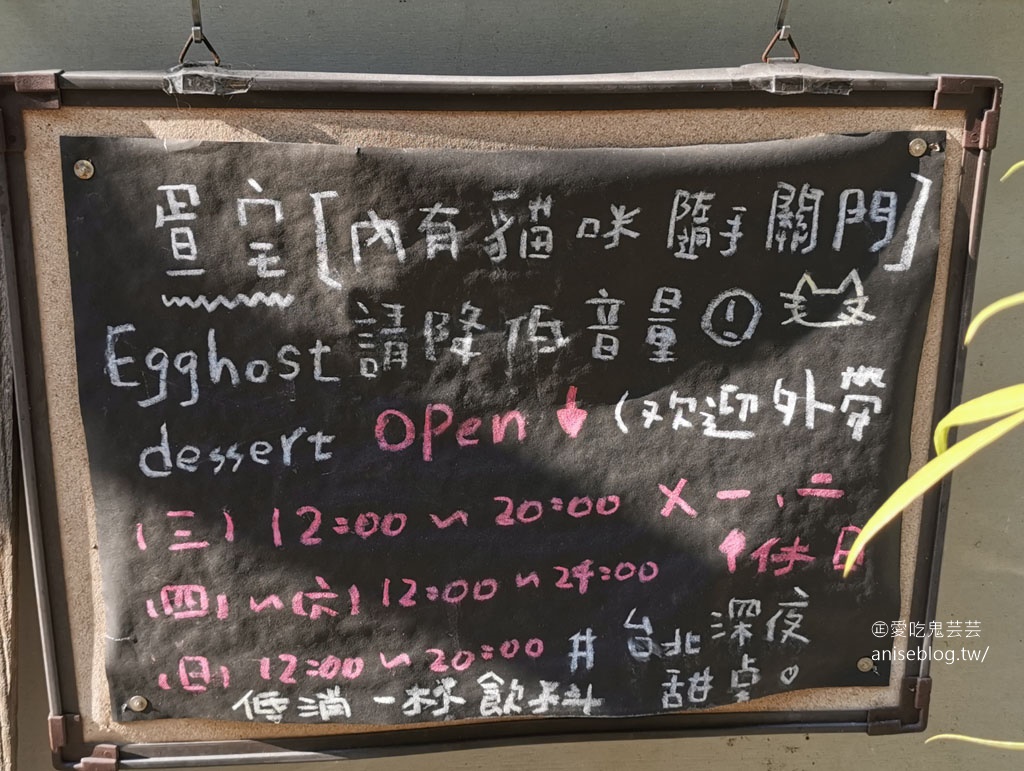 蛋宅[內有貓咪 隨手關門]
Egghost 請降低音量!
dessert open ↓ (欢迎外帶
(三) 12:00 ~ 20:00 X 一、二
↑休日
(四) ~ (六) 12:00 ~ 24:00
(日) 12:00 ~ 20:00 # 台北深夜
甜桌♡
低消一杯飲料
㊣愛吃鬼芸芸
aniseblog.tw/